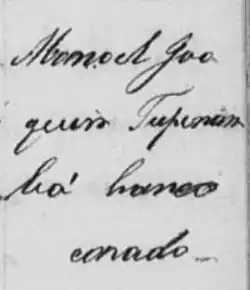 Manoel Joa
quim Tupinam
bá branco
casado